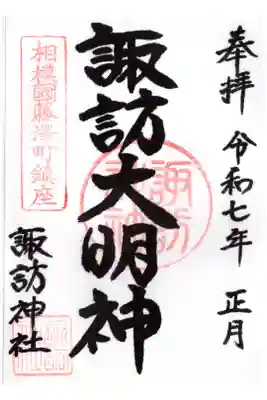 奉拝 令和七年 正月
諏訪大明神
諏訪神社
相模國藤澤町鎮座
諏訪神社